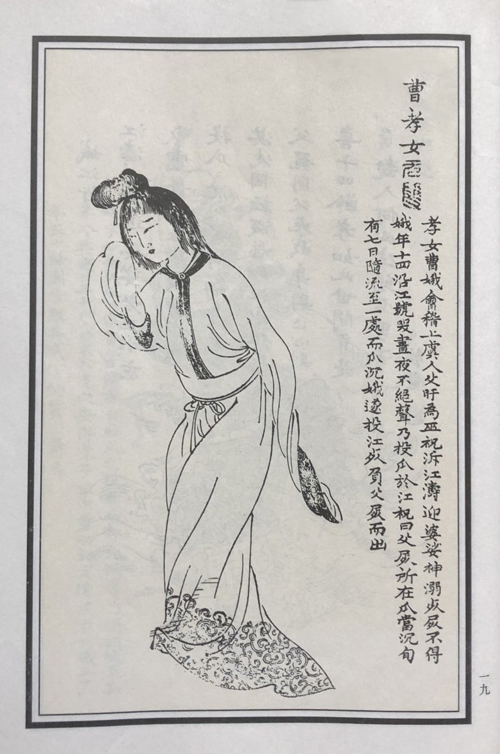 曹孝女
孝女曹娥會稽上虞人父盱為巫祝泝江濤迎婆娑神溺死屍不得
娥年十四沿江號哭晝夜不絕聲乃投瓜於江祝曰父屍所在瓜當沉旬
有七日隨流至一處而瓜沉娥遂投江死負父屍而出
一九